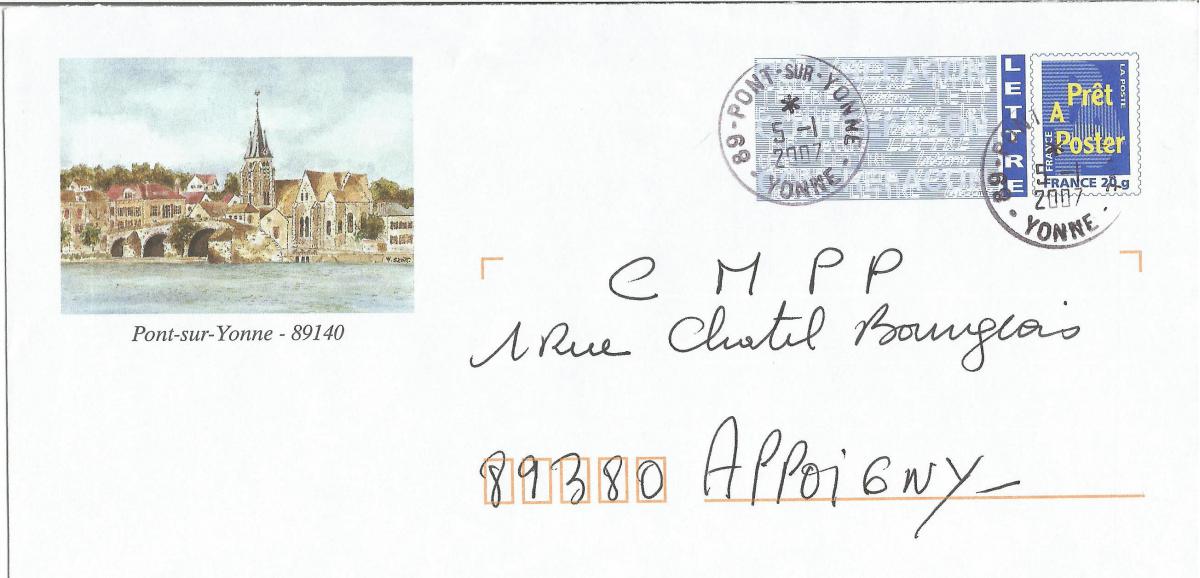 89 - PONT-SUR-YONNE
*
5 -1
2007
- YONNE -
LETTRE
LA POSTE
Prêt
A
Poster
FRANCE
FRANCE 20 g
89
*
5 -1
2007
- YONNE -
Pont-sur-Yonne - 89140
C M P P
1 Rue Chatel Bourgeois
89380 APPOIGNY